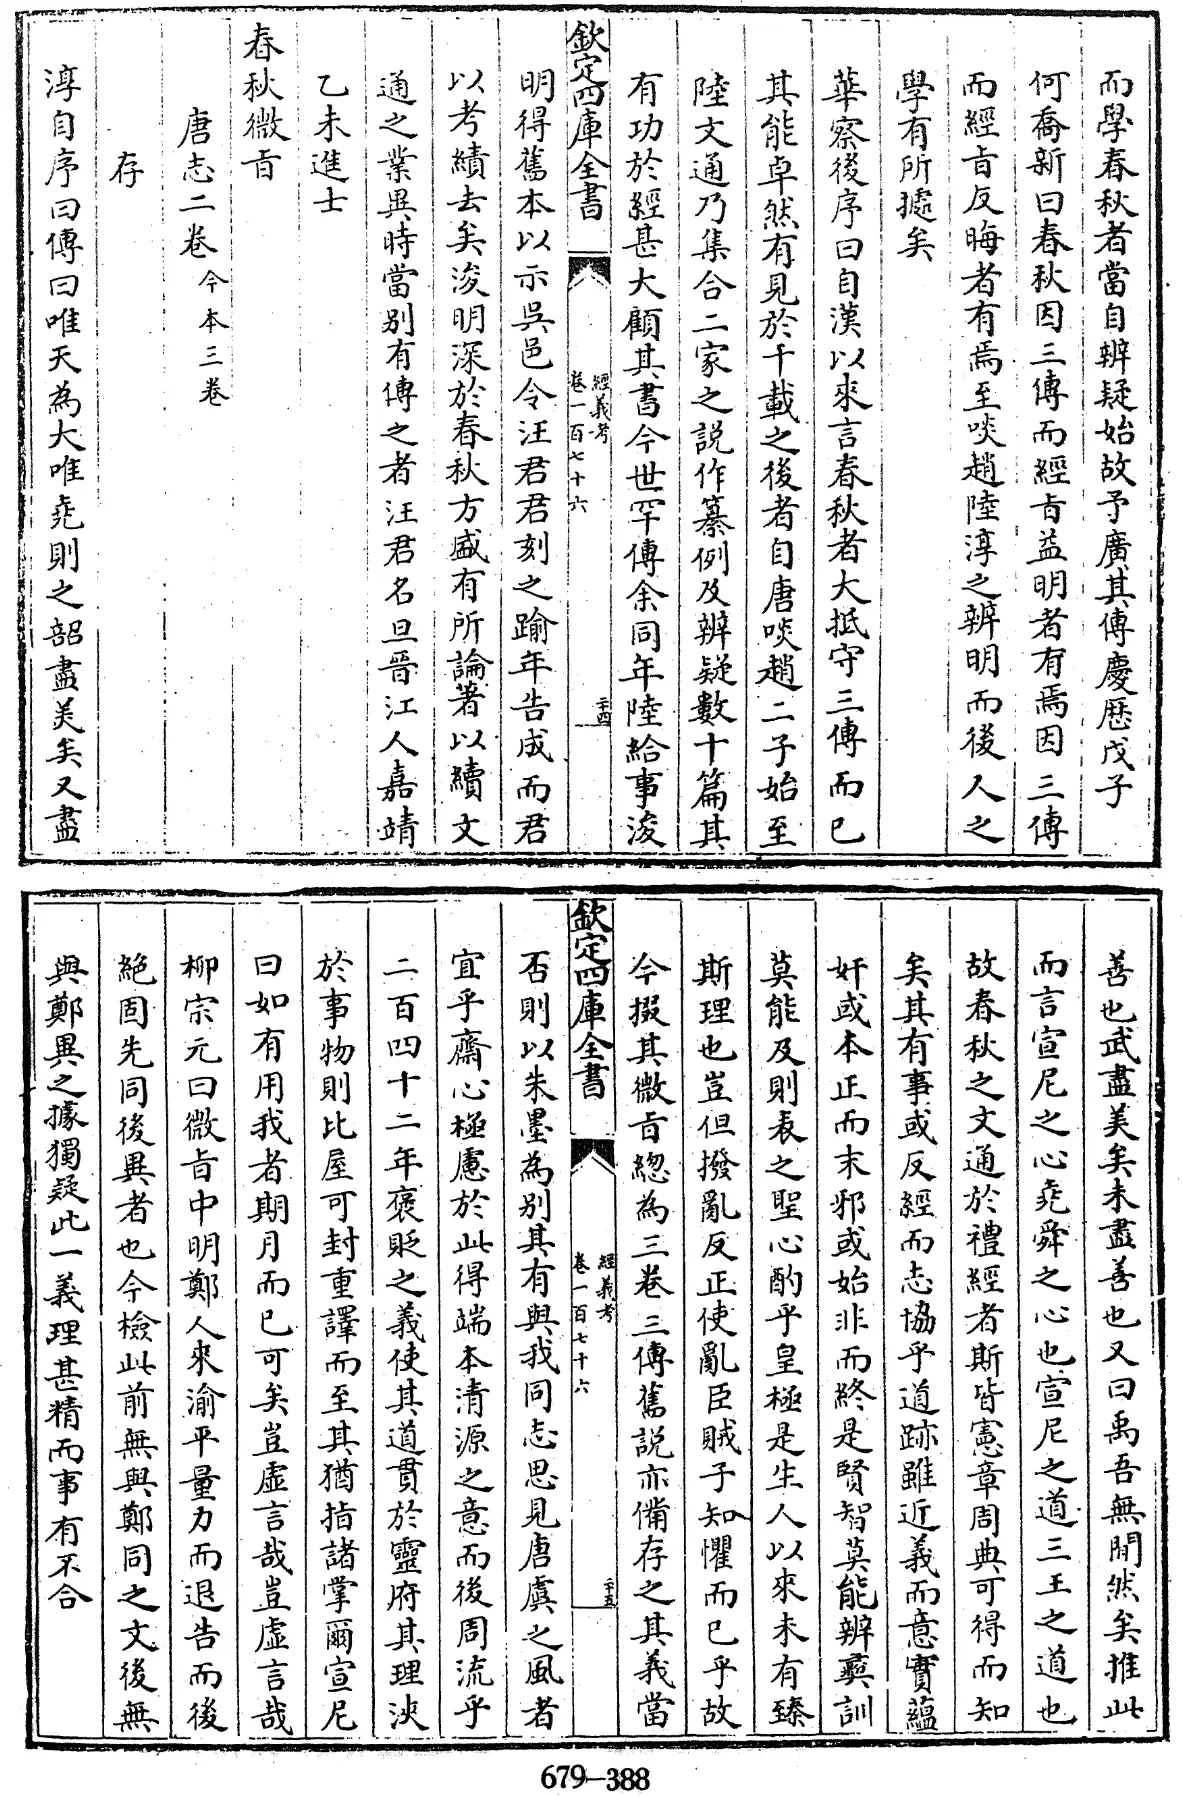 而學春秋者當自辨疑始故予廣其傳慶歷戊子
何喬新曰春秋因三傳而經㫖益明者有焉因三傳
而經㫖反晦者有焉至啖趙陸淳之辨明而後人之
學有所據矣
華察後序曰自漢以來言春秋者大抵守三傳而已
其能卓然有見於千載之後者自唐啖趙二子始至
陸文通乃集合二家之說作纂例及辨疑數十篇其
有功於經甚大顧其書今世罕傳余同年陸給事浚
欽定四庫全書
經義考
卷一百七十六
二十四
明得舊本以示吳邑令汪君君刻之踰年告成而君
以考績去矣浚明深於春秋方盛有所論著以續文
通之業異時當別有傳之者汪君名旦晉江人嘉靖
乙未進士
春秋微㫖
唐志二卷 今本三卷
存
淳自序曰傳曰唯天為大唯堯則之韶盡美矣又盡
善也武盡美矣未盡善也又曰禹吾無閒然矣推此
而言宣尼之心堯舜之心也宣尼之道三王之道也
故春秋之文通於禮經者斯皆憲章周典可得而知
矣其有事或反經而志協乎道跡雖近義而意實蘊
奸或本正而末邪或始非而終是賢智莫能辨彝訓
莫能及則表之聖心酌乎皇極是生人以來未有臻
斯理也豈但撥亂反正使亂臣賊子知懼而已乎故
今掇其微㫖緫為三卷三傳舊説亦備存之其義當
欽定四庫全書
經義考
卷一百七十六
二十五
否則以朱墨為別其有與我同志思見唐虞之風者
宜乎齋心極慮於此得端本清源之意而後周流乎
二百四十二年褒貶之義使其道貫於靈府其理浹
於事物則比屋可封重譯而至其猶指諸掌爾宣尼
曰如有用我者期月而已可矣豈虛言哉豈虛言哉
柳宗元曰微㫖中明鄭人來渝平量力而退告而後
絶固先同後異者也今檢此前無與鄭同之文後無
與鄭異之據獨疑此一義理甚精而事有不合
679-388